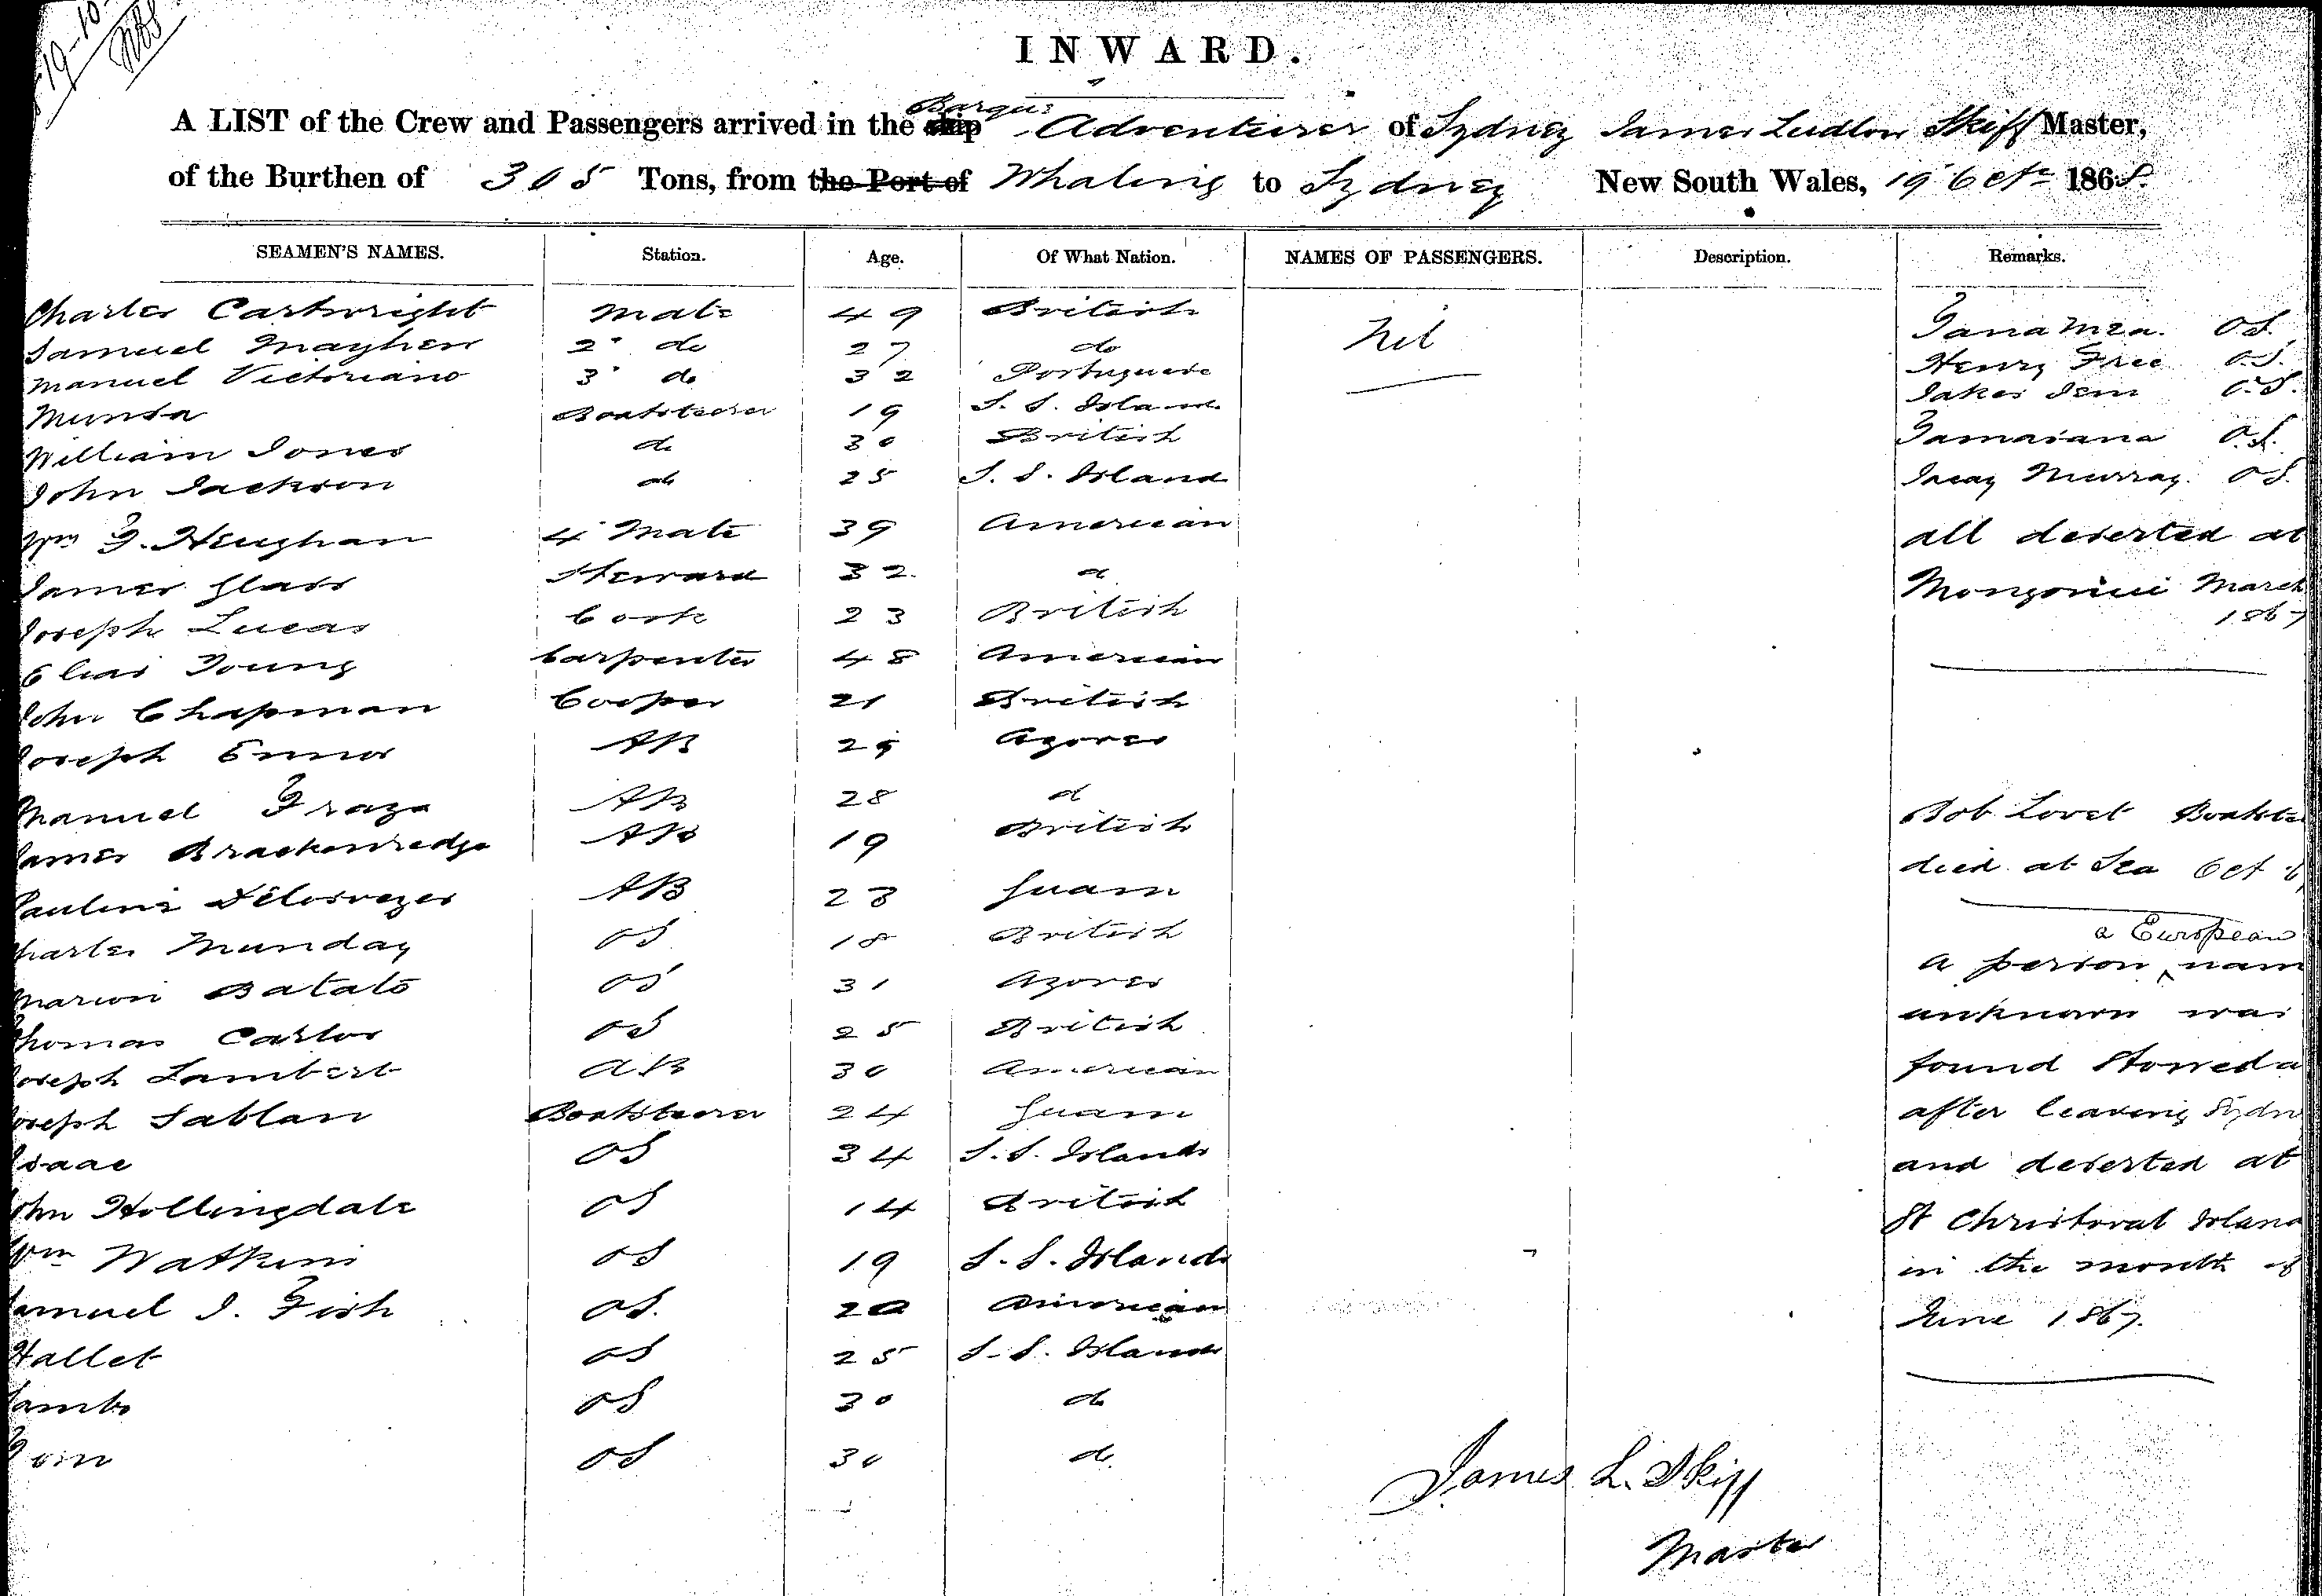 19-10-
INWARD.
A LIST of the Crew and Passengers arrived in the ship Barque Adventurer of Sydney James Ludlow Skiff Master,
of the Burthen of 305 Tons, from the Port of Whaling to Sydney New South Wales, 19 Octr 1868.
SEAMEN'S NAMES. Station. Age. Of What Nation. NAMES OF PASSENGERS. Description. Remarks.
Charles Cartwright Mate 49 British Nil Tana Mea. OS.
Samuel Mayhew 2 do 27 do Henry Free OS.
Manuel Victoriano 3 do 32 Portuguese Jakes Jem O.S.
Munsa Boatsteerer 19 S. S. Island
William Jones do 30 British Tamaiana O.S.
John Jackson do 25 S. S. Island Murray. OS.
Wm F. Heughan 4 Mate 39 American all deserted at
James Glass Steward 32 do Mongonui March
Joseph Lucas Cook 23 British 1867
Elias Young Carpenter 48 American
John Chapman Cooper 21 British
Joseph Ennos AB 25 Azores
Manuel Fraza AB 28 do Bob Lovet Boatste
James Brackenredge AB 19 British died at Sea Oct
AB 23 Guam
Charles Munday OS 18 British a European
Marion Batato OS 31 Azores a person nam
Thomas Carlos OS 25 British unknown was
Joseph Lambert AB 30 American found Stowed a
Joseph Sablan Boatsteerer 24 Guam after leaving Sydn
Isaac OS 34 S. S. Islands and deserted at
John Hollingdale OS 14 British St Christoval Island
Wm Watkins OS 19 S. S. Islands in the month of
Samuel J. Fish OS. 20 American June 1867.
Hallet OS 25 S. S. Islands
Sambo OS 30 do
OS 30 do
James L. Skiff
Master